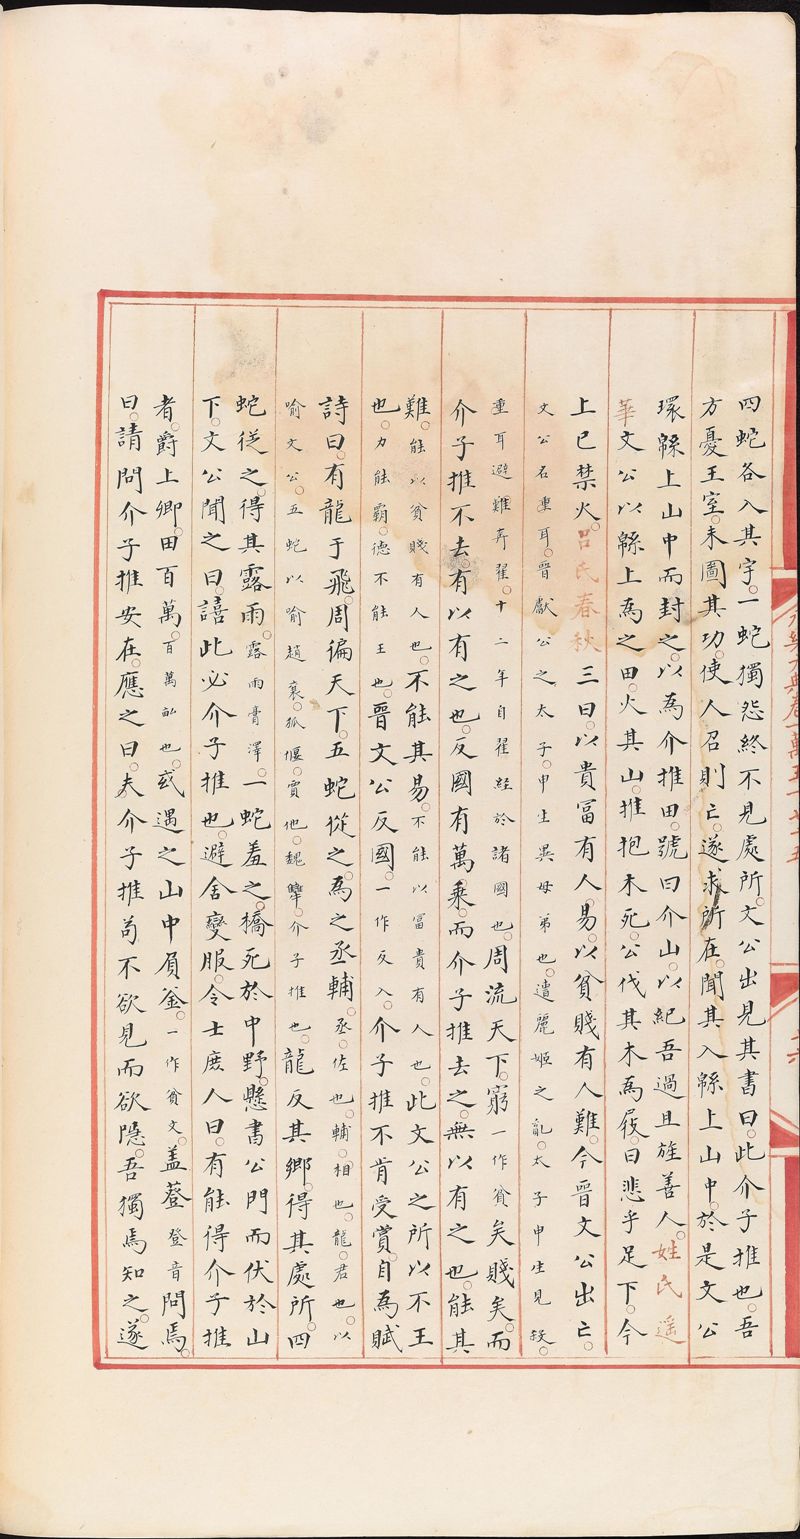 四蛇各入其宇。一蛇獨怨終不見處所。文公出見其書曰。此介子推也。吾
方憂王室。未圖其功。使人召則亡。遂求所在。聞其入緜上山中。於是文公
環緜上山中而封之。以為介推田。號曰介山。以紀吾過且旌善人。姓氏遥
華文公以緜上為之田。火其山。推抱木死。公伐其木為屐。曰悲乎足下。今
上巳禁火。呂氏春秋三曰。以貴冨有人易。以貧賤有人難。今晉文公出亡。
文公名重耳。晉獻公之太子。申生異母弟也。遭麗姬之亂。太子申生見殺。
重耳避難奔翟。十二年自翟經於諸國也。周流天下。窮一作貧矣賤矣。而
介子推不去。有以有之也。反國有萬乘。而介子推去之。無以有之也。能其
難。能以貧賤有人也。不能其易。不能以冨貴有人也。此文公之所以不王
也。力能霸。德不能王也。晉文公反國。一作反入。介子推不肯受賞。自為賦
詩曰。有龍于飛。周徧天下。五蛇從之。為之丞輔。丞佐也。輔相也。龍君也。以
喻文公。五蛇以喻趙衰。狐偃。賈他。魏犫。介子推也。龍反其鄉。得其處所。四
蛇從之。得其露雨。露雨膏澤。一蛇羞之。橋死於中野。懸書公門而伏於山
下。文公聞之曰。譆此必介子推也。避舍變服。令士庶人曰。有能得介子推
者。爵上卿。田百萬。百萬畝也。或遇之山中負釜。一作貧文。盖簦登音問焉。
曰。請問介子推安在。應之曰。夫介子推苟不欲見而欲隱。吾獨焉知之。遂